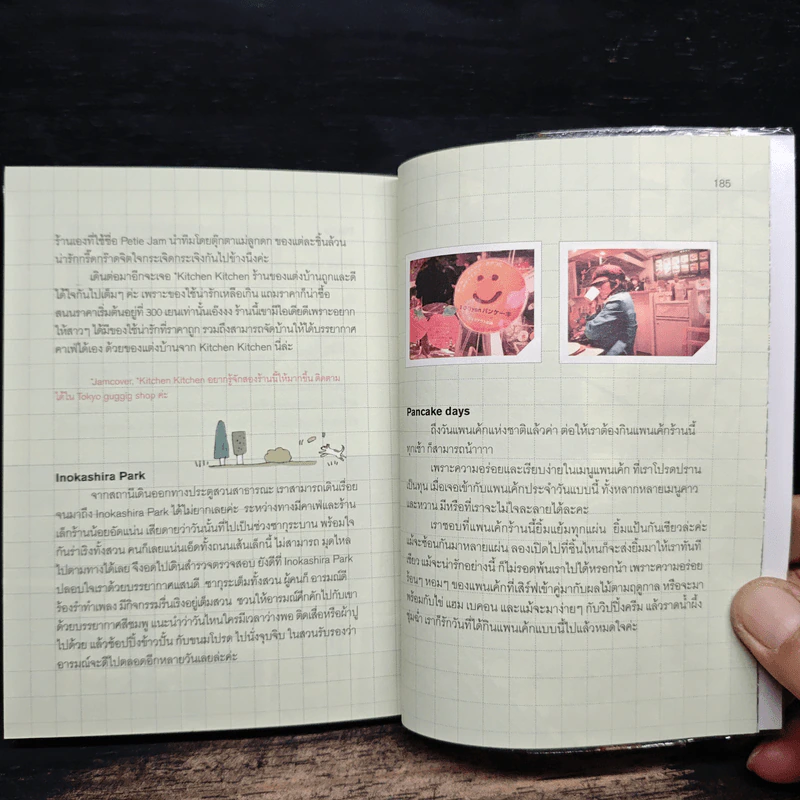 ร้านเองที่ใช้ชื่อ Petie Jam นำทีมโดยตุ๊กตาแม่ลูกดก ของแต่ละชิ้นล้วน
น่ารักกรี๊ดกร๊าดจิตใจกระเจิดกระเจิงกันไปข้างนึงค่ะ
เดินต่อมาอีกจะเจอ *Kitchen Kitchen ร้านของแต่งบ้านถูกและดี
ได้ใจกันไปเต็มๆ ค่ะ เพราะของใช้น่ารักเหลือเกิน แถมราคาก็น่าซื้อ
สนนราคาเริ่มต้นอยู่ที่ 300 เยนเท่านั้นเอ๊งงง ร้านนี้เขามีไอเดียดีเพราะอยาก
ให้สาวๆ ได้มีของใช้น่ารักที่ราคาถูก รวมถึงสามารถจัดบ้านให้ได้บรรยากาศ
คาเฟ่ได้เอง ด้วยของแต่งบ้านจาก Kitchen Kitchen นี่ล่ะ
*Jamcover, *Kitchen Kitchen อยากรู้จักสองร้านนี้ให้มากขึ้น ติดตาม
ได้ใน Tokyo guggig shop ค่ะ
Inokashira Park
จากสถานีเดินออกทางประตูสวนสาธารณะ เราสามารถเดินเรื่อย
จนมาถึง Inokashira Park ได้ไม่ยากเลยค่ะ ระหว่างทางมีคาเฟ่และร้าน
เล็กร้านน้อยอัดแน่น เสียดายว่าวันนั้นที่ไปเป็นช่วงซากุระบาน พร้อมใจ
กันร่าเริงทั้งสวน คนก็เลยแน่นเอี๊ดทั้งถนนเส้นเล็กนี้ ไม่สามารถ มุดไหล
ไปตามทางได้เลย จึงอดไปเดินสำรวจตรวจสอบ ยังดีที่ Inokashira Park
ปลอบใจเราด้วยบรรยากาศแสนดี ซากุระเต็มทั้งสวน ผู้คนก็ อารมณ์ดี
ร้องรำทำเพลง มีกิจกรรมรื่นเริงอยู่เต็มสวน ชวนให้อารมณ์คึกคักไปกับเขา
ด้วยบรรยากาศสีชมพู แนะนำว่าวันไหนใครมีเวลาว่างพอ ติดเสื่อหรือผ้าปู
ไปด้วย แล้วช้อปปิ้งข้าวปั้น กับขนมโปรด ไปนั่งจุบจิบ ในสวนรับรองว่า
อารมณ์จะดีไปตลอดอีกหลายวันเลยล่ะค่ะ
185
パンケーキ
Pancake days
ถึงวันแพนเค้กแห่งชาติแล้วค่า ต่อให้เราต้องกินแพนเค้กร้านนี้
ทุกเช้า ก็สามารถน้าาาา
เพราะความอร่อยและเรียบง่ายในเมนูแพนเค้ก ที่เราโปรดปราน
เป็นทุน เมื่อเจอเข้ากับแพนเค้กประจำวันแบบนี้ ทั้งหลากหลายเมนูคาว
และหวาน มีหรือที่เราจะไม่ใจละลายได้ลงค่ะ
เราชอบที่แพนเค้กร้านนี้ยิ้มแย้มทุกแผ่น ยิ้มแป้นกันเชียวล่ะค่ะ
แม้จะซ้อนกันมาหลายแผ่น ลองเปิดไปที่ชิ้นไหนก็จะส่งยิ้มมาให้เราทันที
เชียว แม้จะน่ารักอย่างนี้ ก็ไม่รอดพ้นเราไปได้หรอกน้า เพราะความอร่อย
ร้อนๆ หอมๆ ของแพนเค้กที่เสิร์ฟเข้าคู่มากับผลไม้ตามฤดูกาล หรือจะมา
พร้อมกับไข่ แฮม เบคอน และแม้จะมาง่ายๆ กับวิปปิ้งครีม แล้วราดน้ำผึ้ง
ชุ่มฉ่ำ เราก็รักวันที่ได้กินแพนเค้กแบบนี้ไปแล้วหมดใจค่ะ